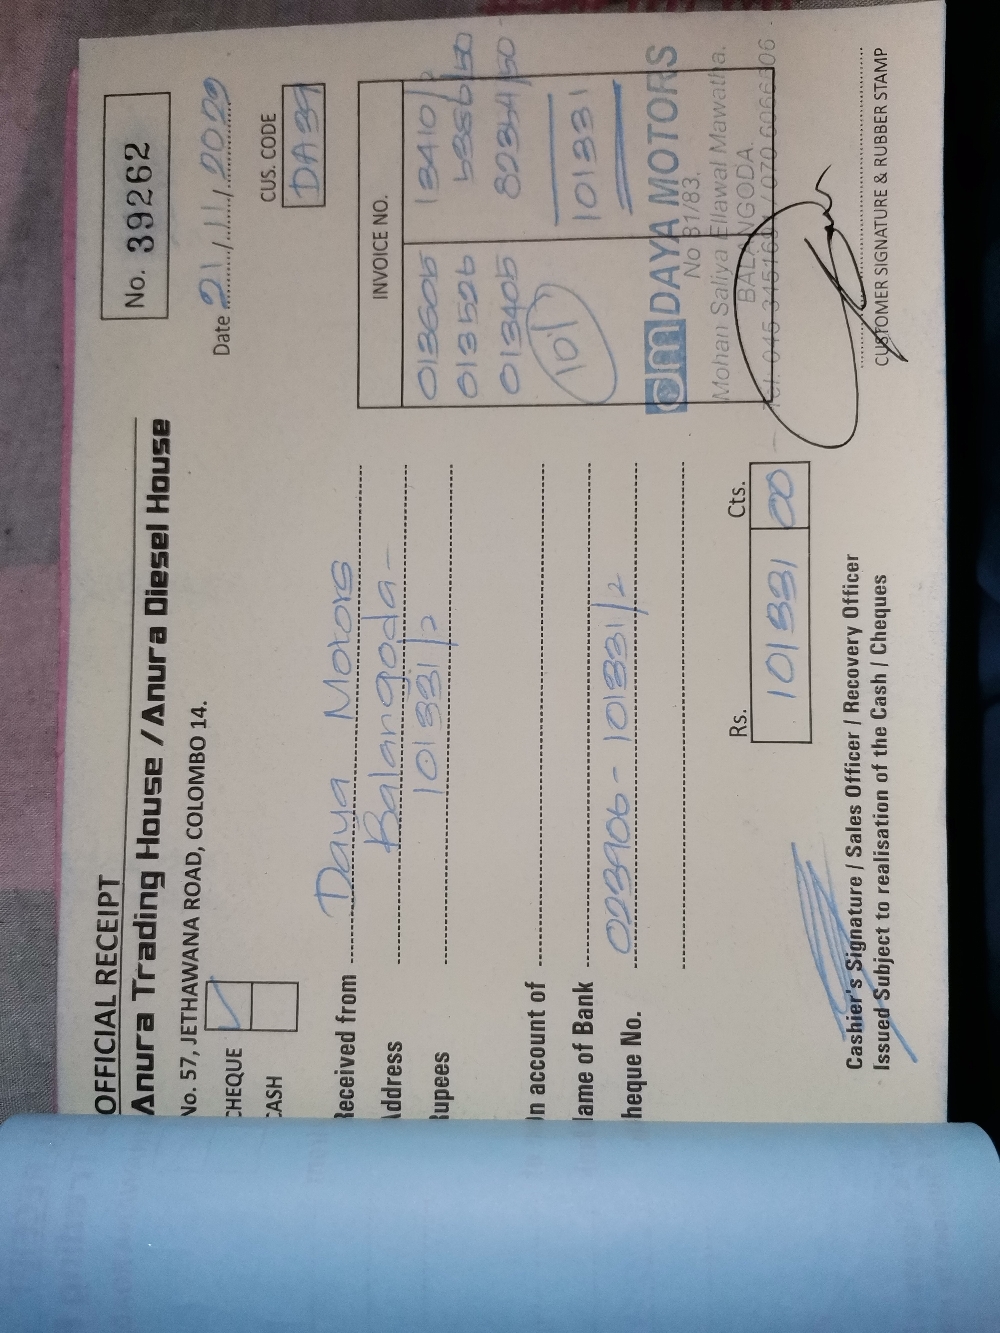 OFFICIAL RECEIPT
Anura Trading House / Anura Diesel House
No. 57, JETHAWANA ROAD, COLOMBO 14.
No. 39262
Date 21/11/2020
CUS. CODE
DA39
CHEQUE ✓
CASH
Received from Daya Motors
Address Balangoda-
Rupees 101331/2
In account of
Name of Bank
Cheque No. 023906 - 101331/2
INVOICE NO.
013605 13410/
013526
013405 82341/50
101 101331
dm DAYA MOTORS
No 31/83,
Mohan Saliya Ellawal Mawatha.
BALANGODA.
Rs. Cts.
101331 00
Cashier's Signature / Sales Officer / Recovery Officer
Issued Subject to realisation of the Cash / Cheques
CUSTOMER SIGNATURE & RUBBER STAMP